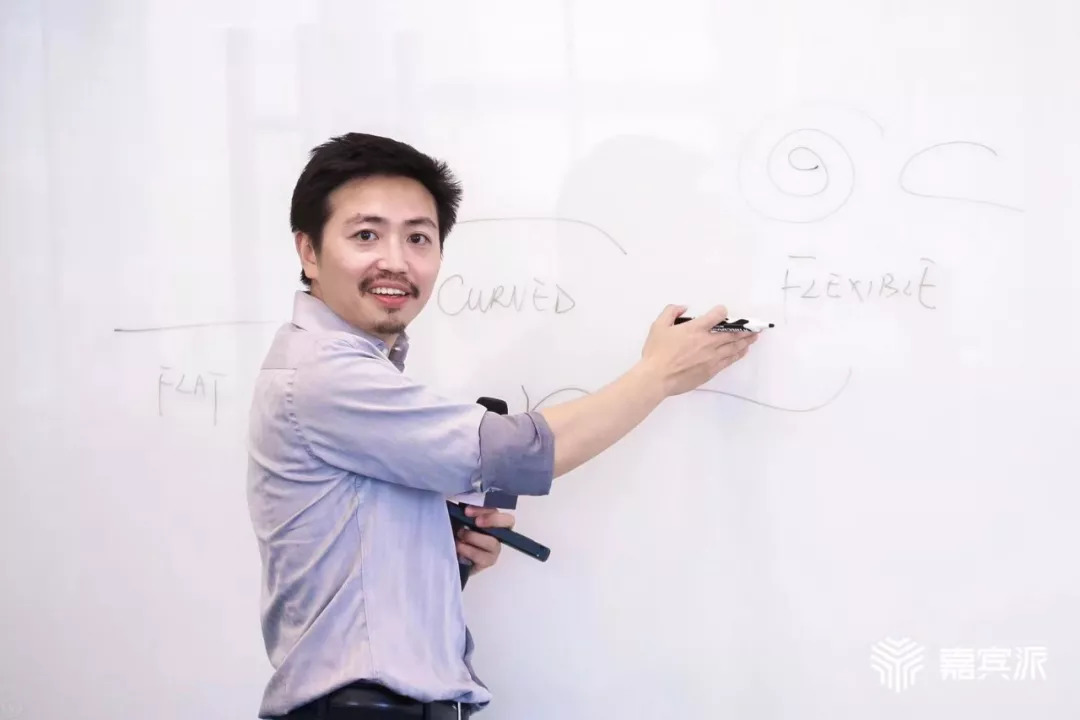 FLAT
CURVED
FLEXIBLE
嘉宾派